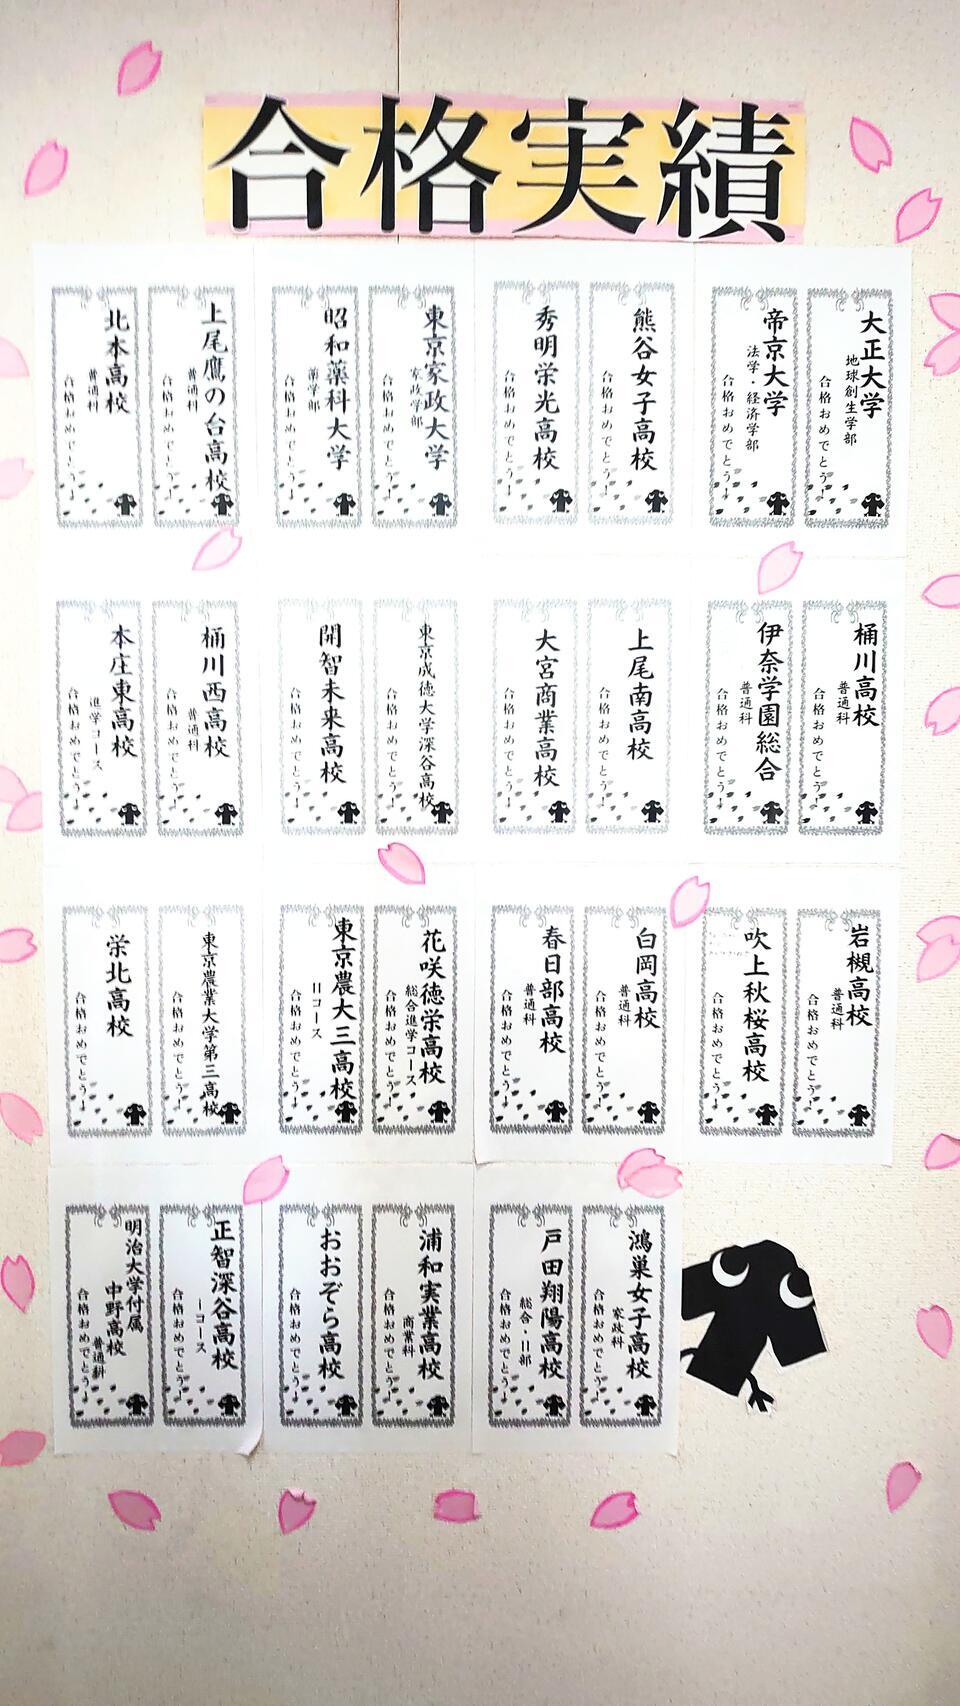 合格実績
大正大学
地球創生学部
合格おめでとう!
帝京大学
法学・経済学部
合格おめでとう!
熊谷女子高校
合格おめでとう!
秀明栄光高校
合格おめでとう!
東京家政大学
家政学部
合格おめでとう!
昭和薬科大学
薬学部
合格おめでとう!
上尾鷹の台高校
普通科
合格おめでとう!
北本高校
普通科
合格おめでとう!
桶川高校
普通科
合格おめでとう!
伊奈学園総合
普通科
合格おめでとう!
上尾南高校
合格おめでとう!
大宮商業高校
合格おめでとう!
東京成徳大学深谷高校
合格おめでとう!
開智未来高校
合格おめでとう!
桶川西高校
普通科
合格おめでとう!
本庄東高校
進学コース
合格おめでとう!
岩槻高校
普通科
合格おめでとう!
吹上秋桜高校
合格おめでとう!
白岡高校
普通科
合格おめでとう!
春日部高校
普通科
合格おめでとう!
花咲徳栄高校
総合進学コース
合格おめでとう!
東京農大三高校
IIコース
合格おめでとう!
東京農業大学第三高校
合格おめでとう!
栄北高校
合格おめでとう!
鴻巣女子高校
家政科
合格おめでとう!
戸田翔陽高校
総合・II部
合格おめでとう!
浦和実業高校
商業科
合格おめでとう!
おおぞら高校
合格おめでとう!
正智深谷高校
Iコース
合格おめでとう!
明治大学付属
中野高校
普通科
合格おめでとう!